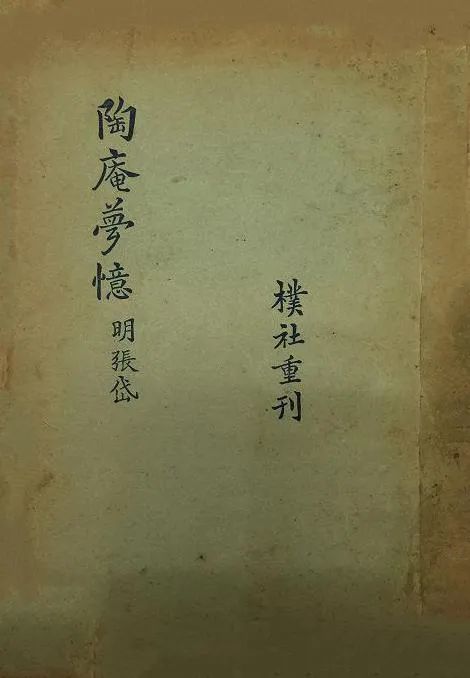 陶庵夢憶
明張岱
樸社重刊